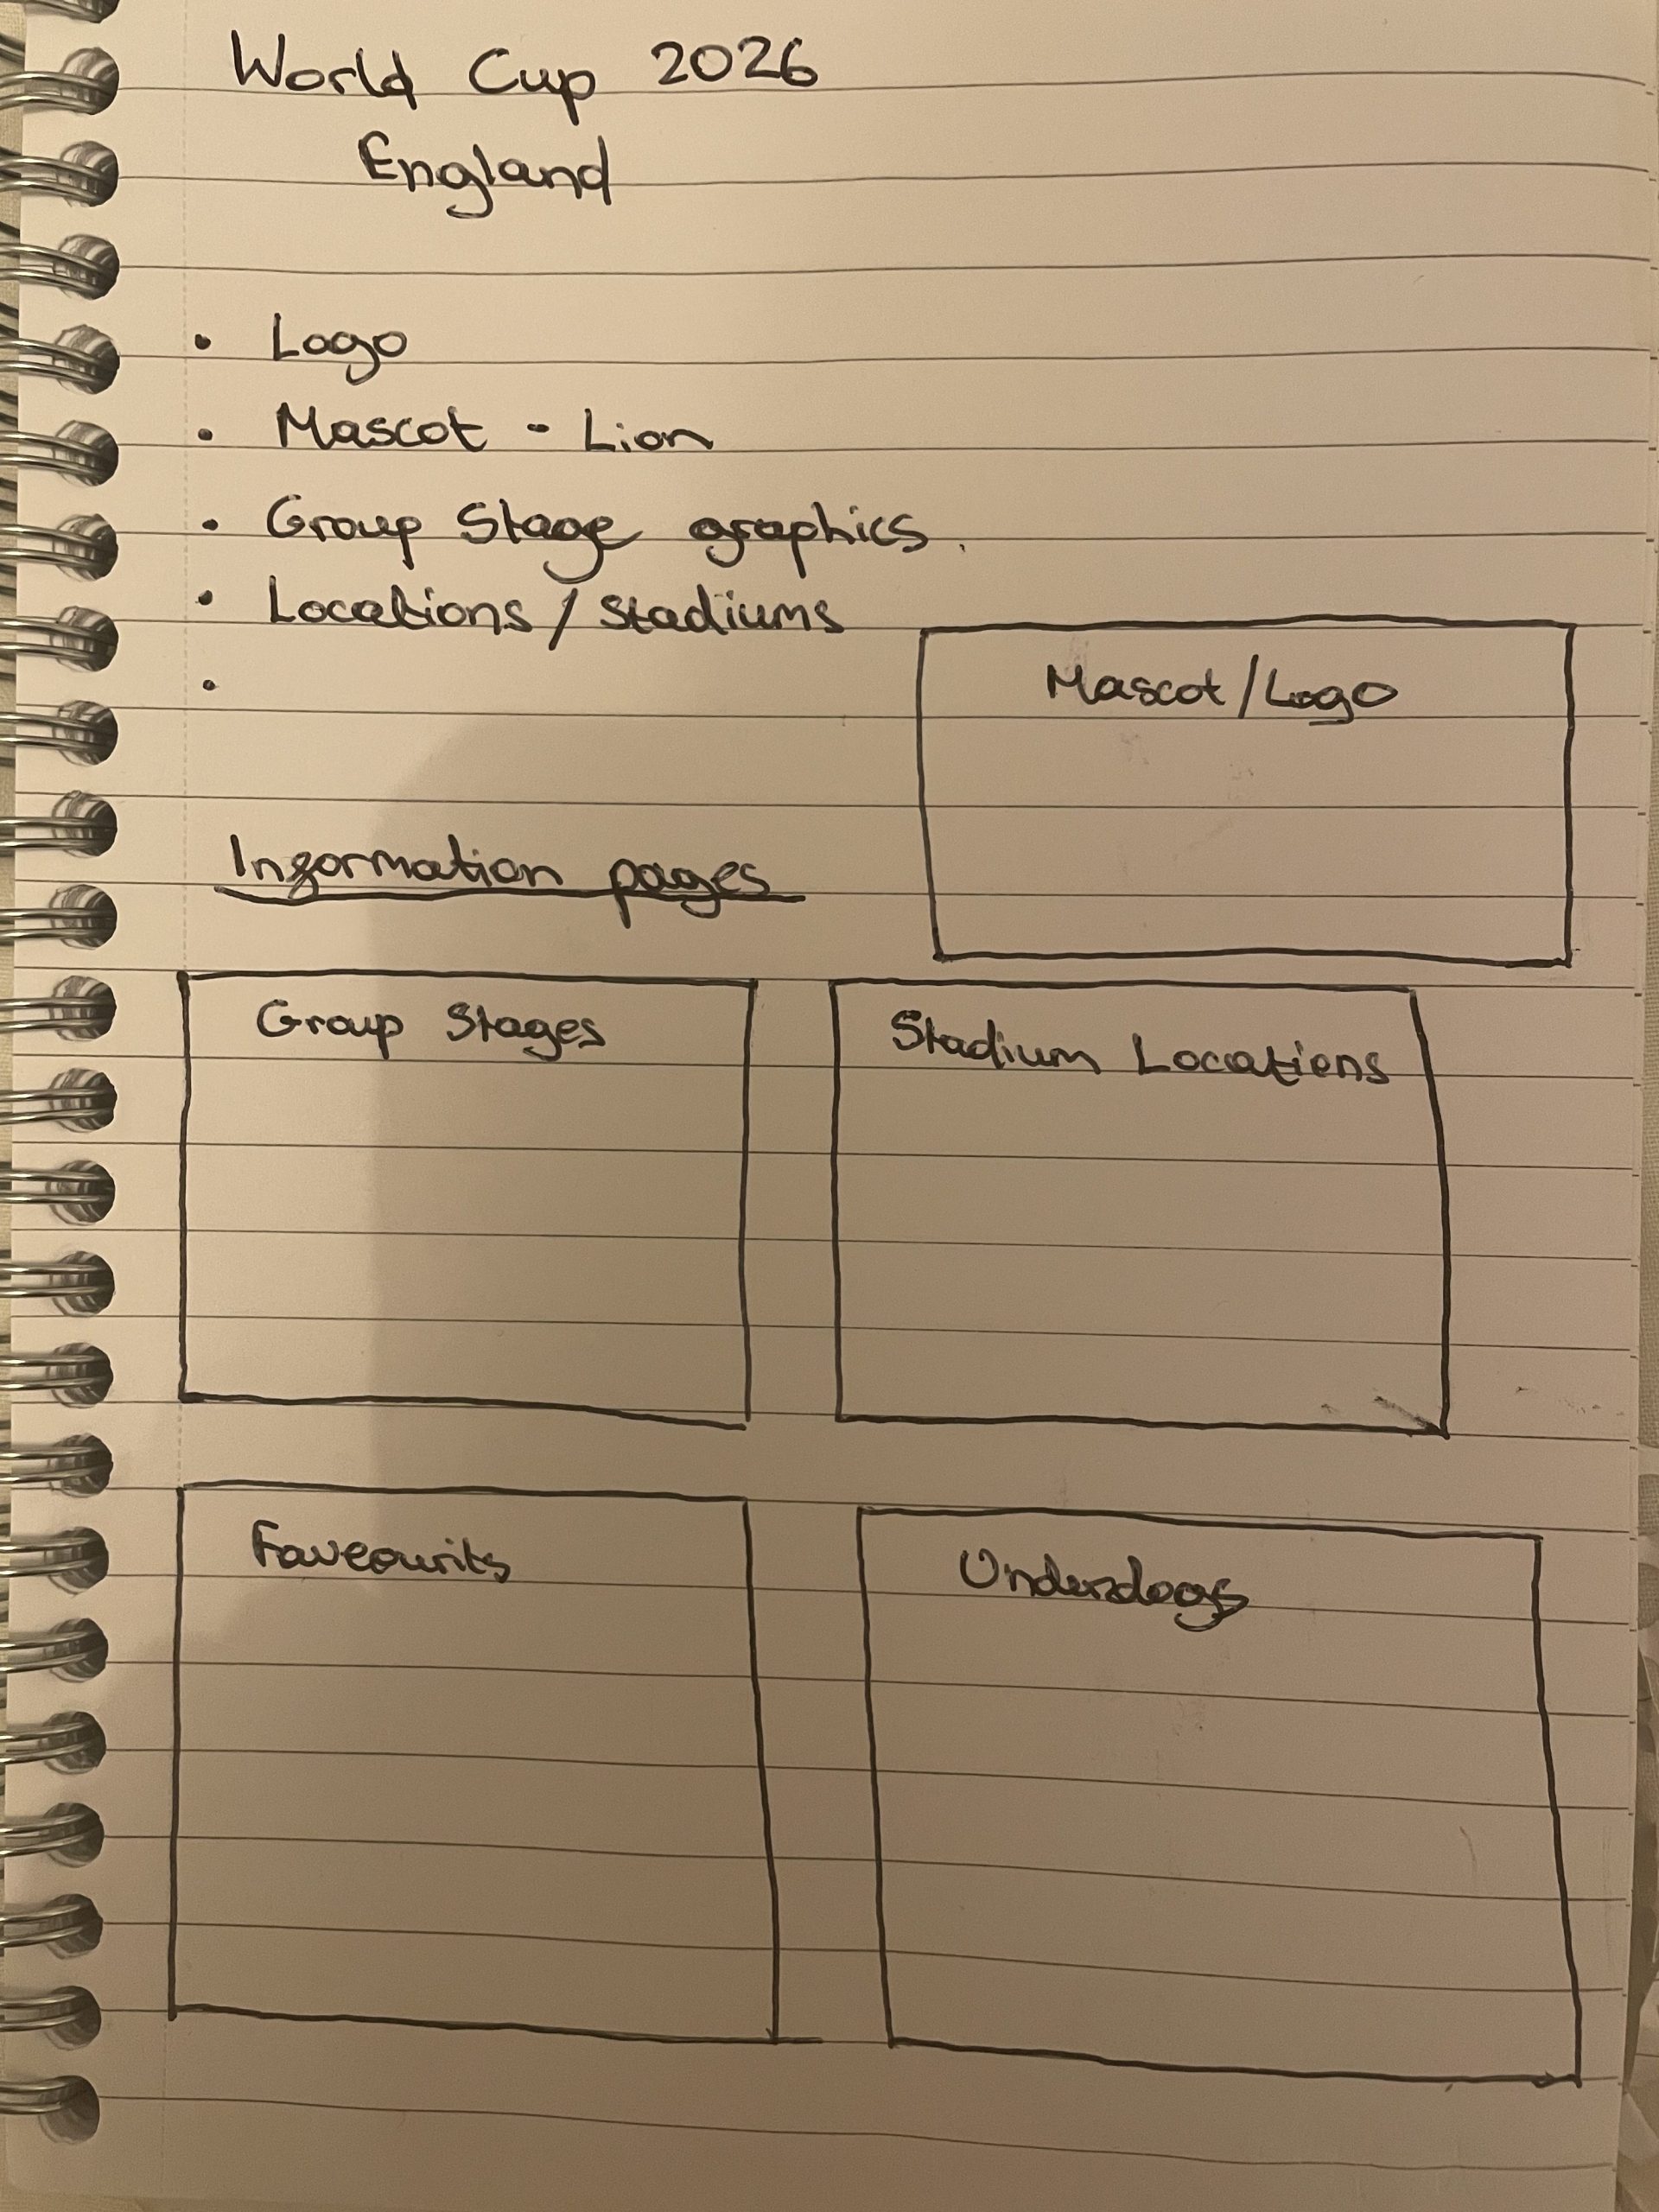 World Cup 2026
England
• Logo
• Mascot - Lion
• Group Stage graphics.
• Locations / Stadiums
•
Mascot/Logo
Information pages
Group Stages
Stadium Locations
Faveourits
Underdogs